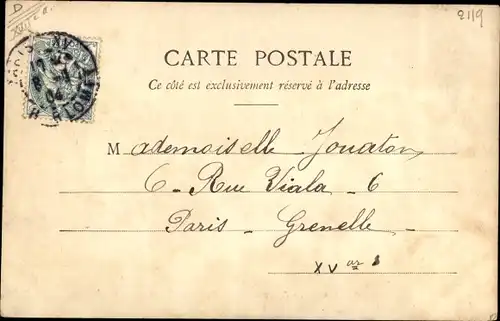 D
2119
CARTE POSTALE
Ce côté est exclusivement réservé à l'adresse
Mademoiselle Jouaton
6 - Rue Viala - 6
Paris - Grenelle -
XVar